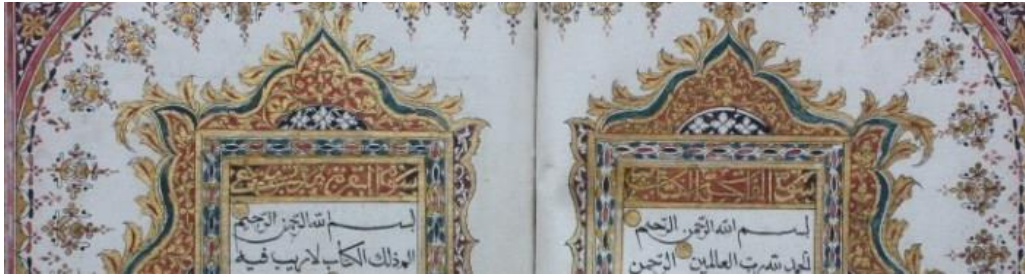 بسم الله الرحمن الرحيم
الحمد لله رب العالمين الرحمن
سورة البقرة
بسم الله الرحمن الرحيم
الم ذلك الكتاب لا ريب فيه